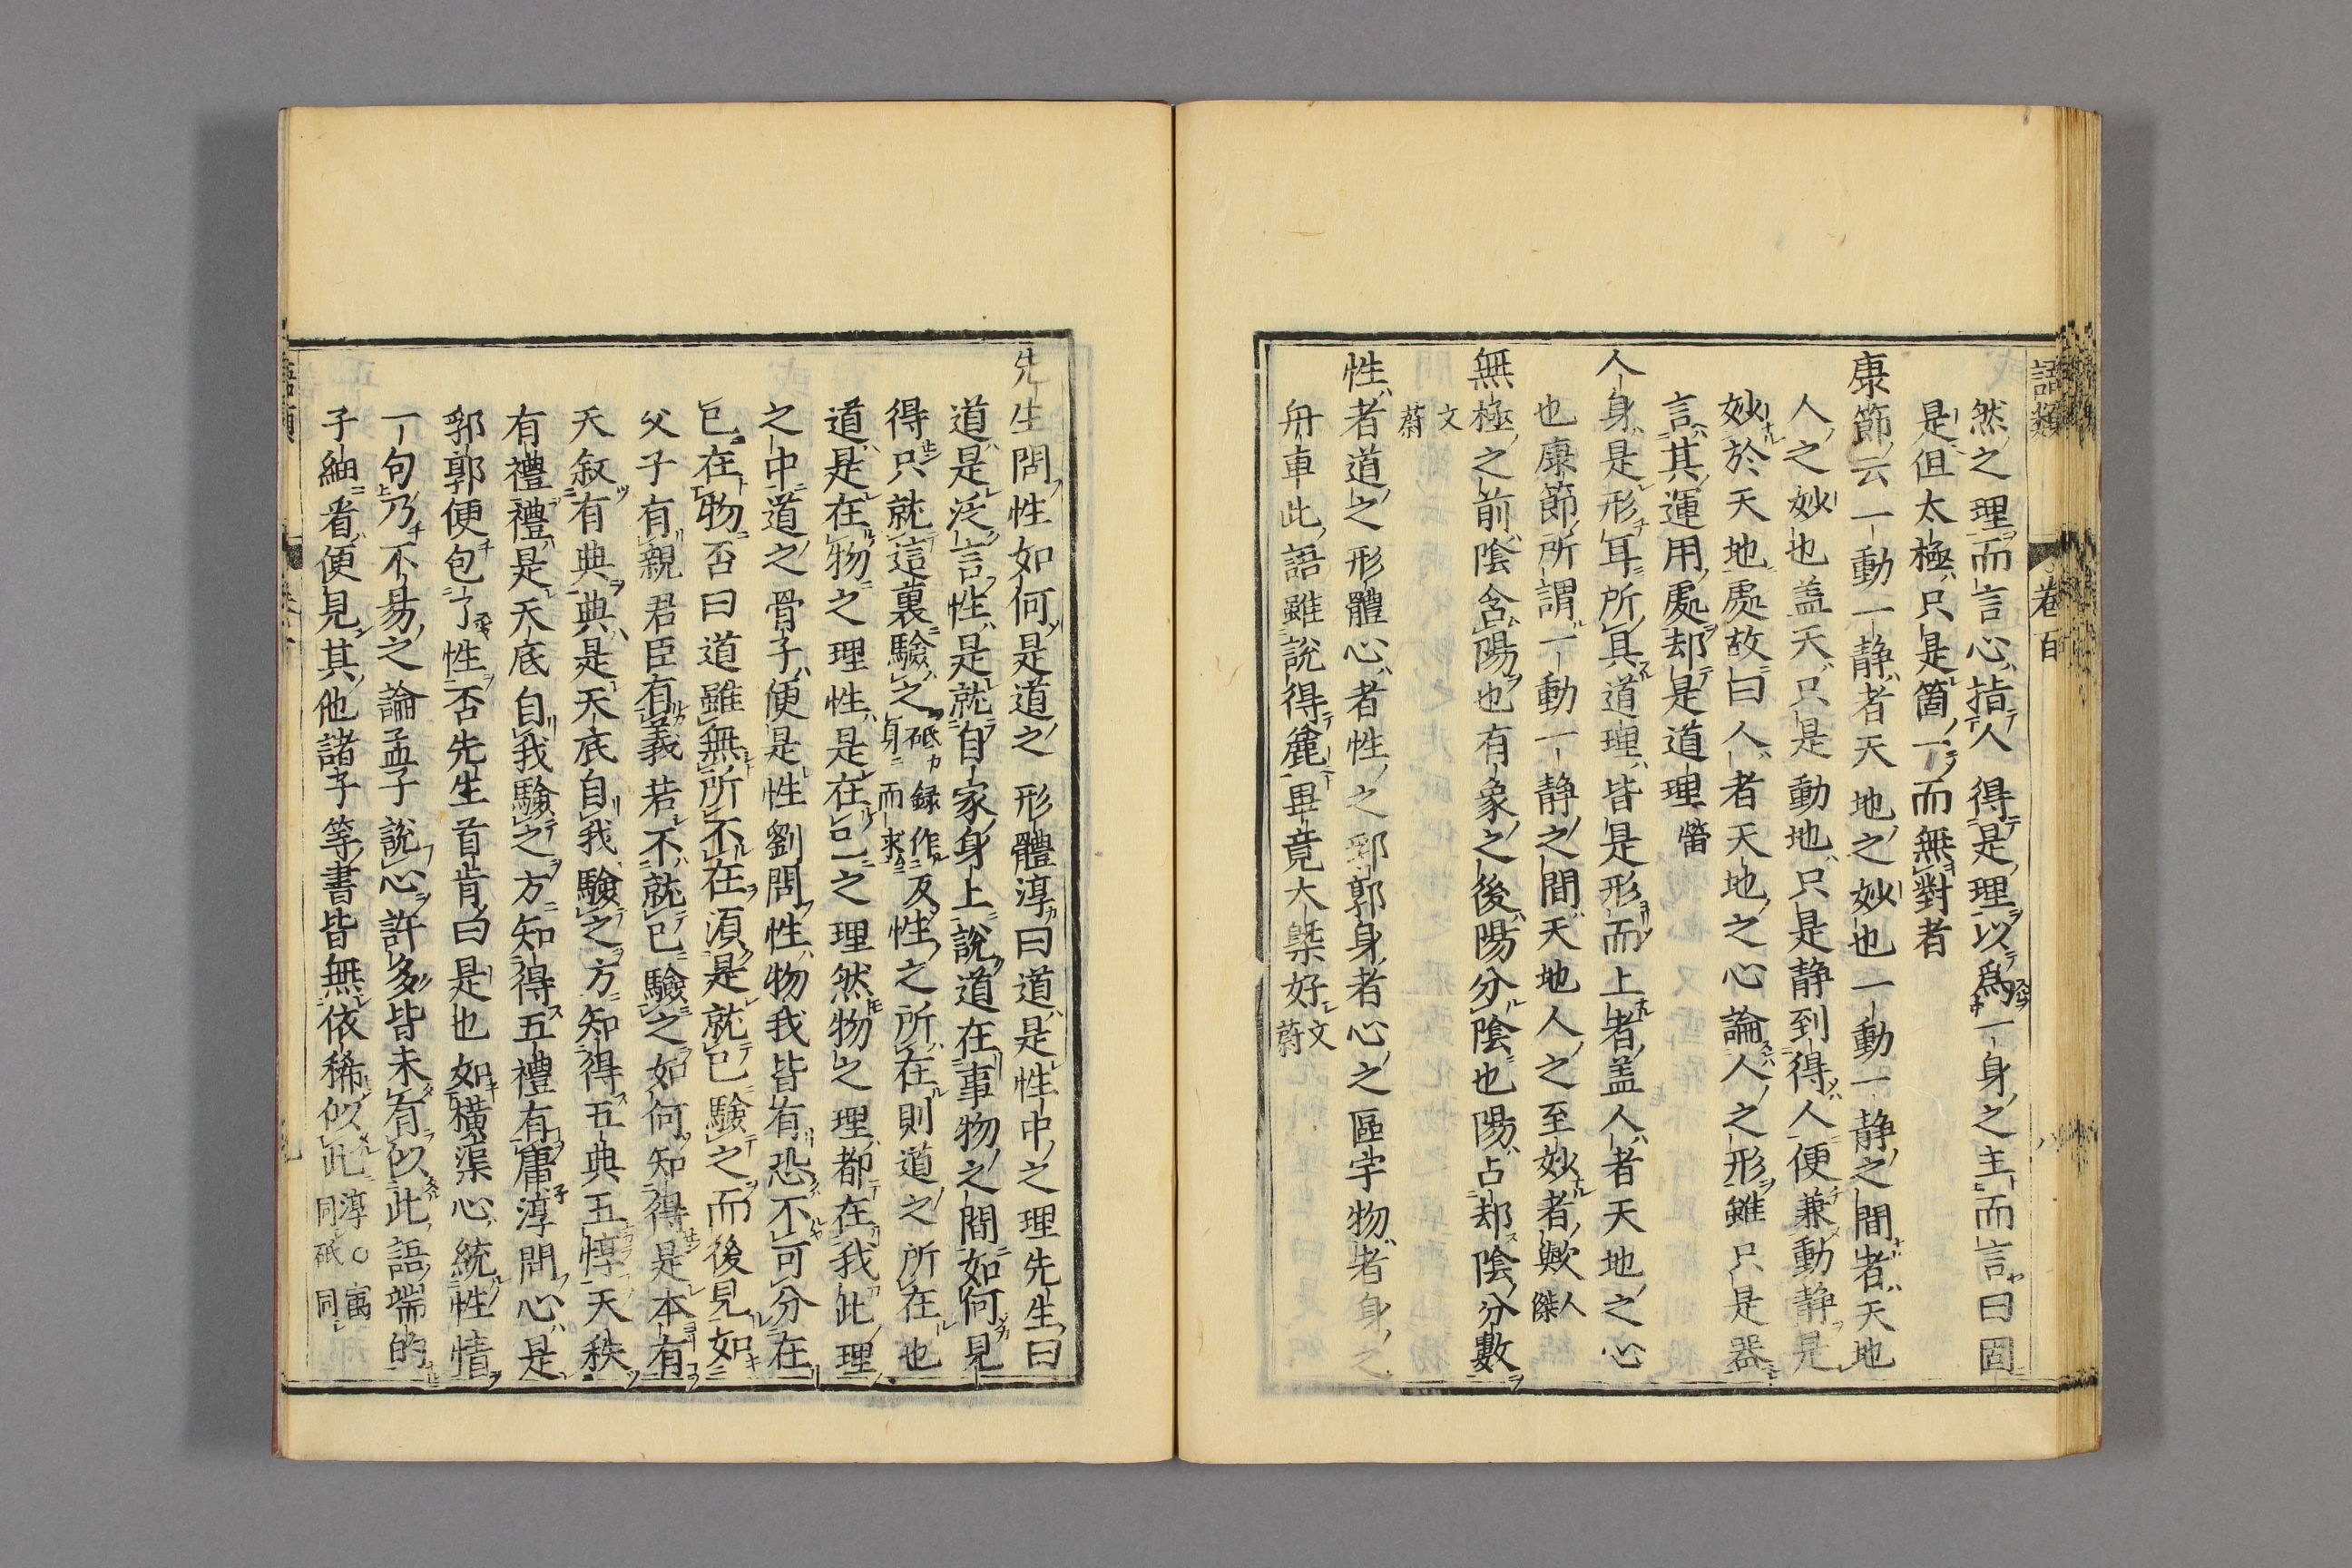 語類 卷百 八
然之理而言心指人得是理以爲一身之主而言曰固
是但太極只是箇一而無對者
康節云一動一静者天地之妙也一動一静之間者天地
人之妙也盖天只是動地只是静到得人便兼動静是
妙於天地處故曰人者天地之心論人之形雖只是器
言其運用處却是道理㽦
人身是形耳所具道理皆是形而上者盖人者天地之心
也康節所謂一動一静之間天地人之至妙者歟人傑
無極之前陰含陽也有象之後陽分陰也陽占却陰分數
文蔚
性者道之形體心者性之郛郭身者心之區宇物者身之
舟車此語雖說得麄畢竟大槩好文蔚
先生問性如何是道之形體淳曰道是性中之理先生曰
道是泛言性是就自家身上說道在事物之間如何見
得只就這裏驗之砥録作反身而求性之所在則道之所在也
道是在物之理性是在己之理然物之理都在我此理
之中道之骨子便是性劉問性物我皆有恐不可分在
己在物否曰道雖無所不在須是就己驗之而後見如
父子有親君臣有義若不就己驗之如何知得是本有
天叙有典典是天底自我驗之方知得五典五惇天秩
有禮禮是天底自我驗之方知得五禮有庸淳問心是
郛郭便包了性否先生首肯曰是也如横渠心統性情
一句乃不易之論孟子說心許多皆未有似此語端的
子細看便見其他諸子等書皆無依稀似此淳○寓同砥同